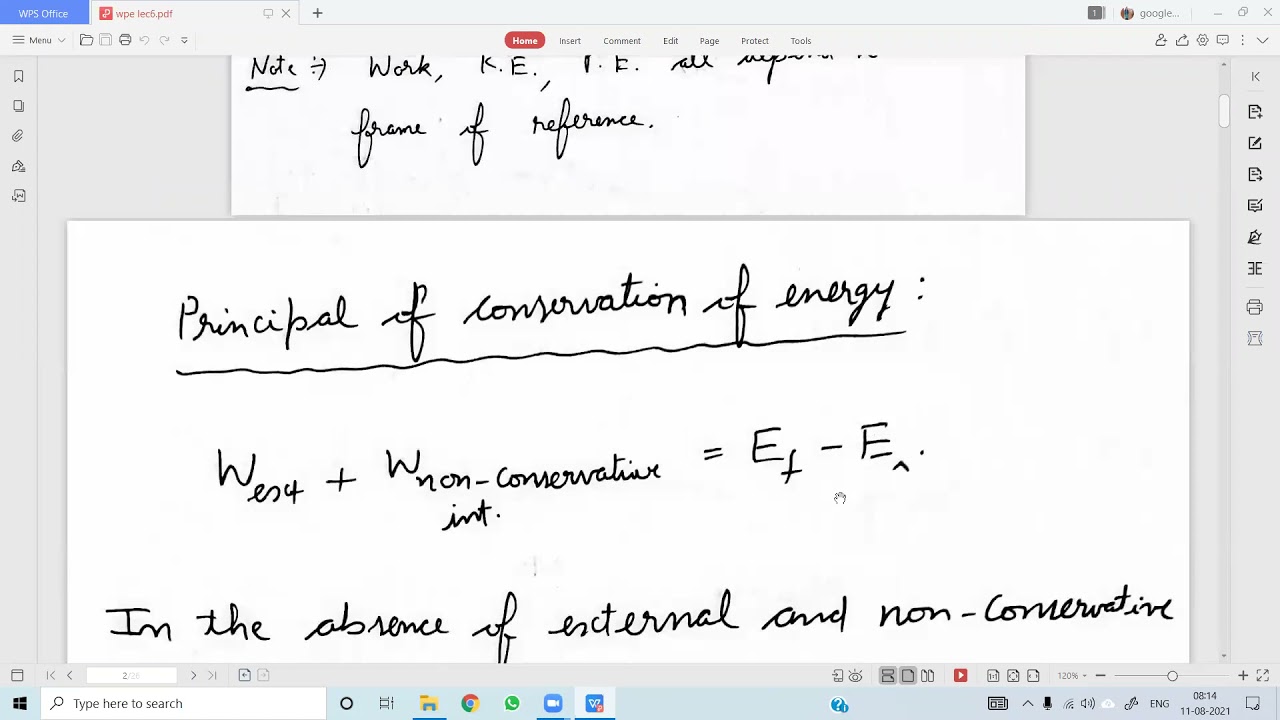 WPS Office
wpe lec6.pdf
1
google...
Menu
Home Insert Comment Edit Page Protect Tools
Note :⇒ Work, K.E., P.E. all depend
frame of reference.
Principal of conservation of energy :
W_ext + W_non-conservative int. = E_f − E_i.
In the absence of external and non-conservative
2/26
120%
Type here to search
08:14
ENG
11-08-2021